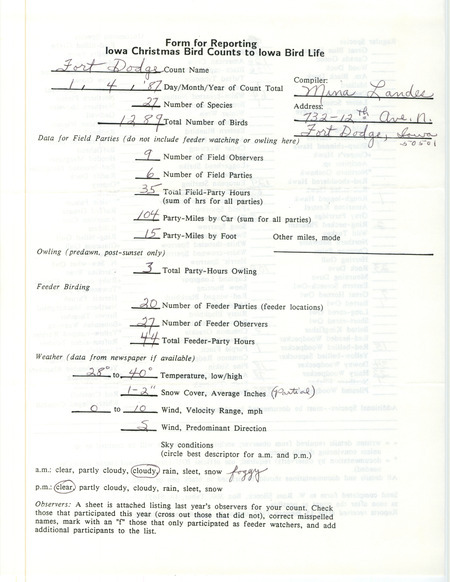 Form for Reporting
Iowa Christmas Bird Counts to Iowa Bird Life
Fort Dodge Count Name
1, 4, '87 Day/Month/Year of Count Total
27 Number of Species
1289 Total Number of Birds
Compiler:
Mina Landee
Address:
732-12th Ave. N.
Fort Dodge, Iowa
50501
Data for Field Parties (do not include feeder watching or owling here)
9 Number of Field Observers
6 Number of Field Parties
35 Total Field-Party Hours
(sum of hrs for all parties)
104 Party-Miles by Car (sum for all parties)
15 Party-Miles by Foot Other miles, mode
Owling (predawn, post-sunset only)
3 Total Party-Hours Owling
Feeder Birding
20 Number of Feeder Parties (feeder locations)
27 Number of Feeder Observers
44 Total Feeder-Party Hours
Weather (data from newspaper if available)
28° to 40° Temperature, low/high
1-2" Snow Cover, Average Inches (Partial)
0 to 10 Wind, Velocity Range, mph
S Wind, Predominant Direction
Sky conditions
(circle best descriptor for a.m. and p.m.)
a.m.: clear, partly cloudy, cloudy, rain, sleet, snow foggy
p.m.: clear, partly cloudy, cloudy, rain, sleet, snow
Observers: A sheet is attached listing last year's observers for your count. Check
those that participated this year (cross out those that did not), correct misspelled
names, mark with an "f" those that only participated as feeder watchers, and add
additional participants to the list.